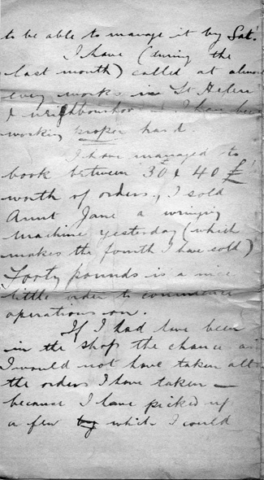 to be able to manage it by Sat.
I have (during the
last month) called at almost
every works in St Helens
& neighbourhood I have been
working proper hard.
I have managed to
book between 30 & 40 £
worth of orders, I sold
Aunt Jane a wringing
machine yesterday (which
makes the fourth I have sold)
Forty pounds is a nice
little order to commence
operations on.
If I had have been
in the shop the chance
I would not have taken all
the orders I have taken —
because I have picked up
a few which I could